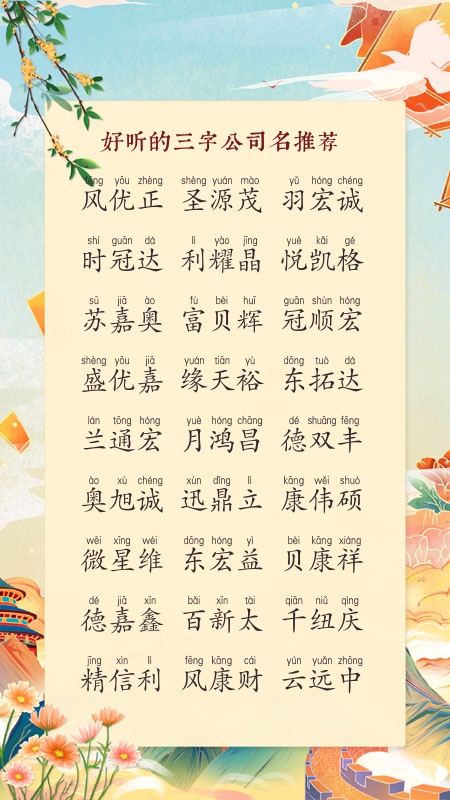 好听的三字公司名推荐
fēng yōu zhèng shèng yuán mào yǔ hóng chéng
风优正 圣源茂 羽宏诚
shí guān dá lì yào jīng yuè kǎi gé
时冠达 利耀晶 悦凯格
sū jiā ào fù bèi huī guān shùn hóng
苏嘉奥 富贝辉 冠顺宏
shèng yōu jiā yuán tiān yù dōng tuò dá
盛优嘉 缘天裕 东拓达
lán tōng hóng yuè hóng chāng dé shuāng fēng
兰通宏 月鸿昌 德双丰
ào xù chéng xùn dǐng lì kāng wěi shuò
奥旭诚 迅鼎立 康伟硕
wēi xīng wéi dōng hóng yì bèi kāng xiáng
微星维 东宏益 贝康祥
dé jiā xīn bǎi xīn tài qiān niǔ qìng
德嘉鑫 百新太 千纽庆
jīng xìn lì fēng kāng cái yún yuǎn zhōng
精信利 风康财 云远中